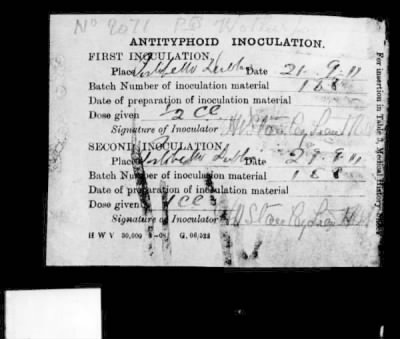 No 9071
ANTITYPHOID INOCULATION.
FIRST INOCULATION.
Place Portobello Date 21-9-11
Batch Number of inoculation material 188
Date of preparation of inoculation material
Dose given 1/2 CC
Signature of Inoculator
SECOND INOCULATION.
Place Portobello Date 29.9.11
Batch Number of inoculation material 188
Date of preparation of inoculation material
Dose given 1 CC
Signature of Inoculator
H W V 50,000 -08 G. 06/523
For insertion in Table Medical History